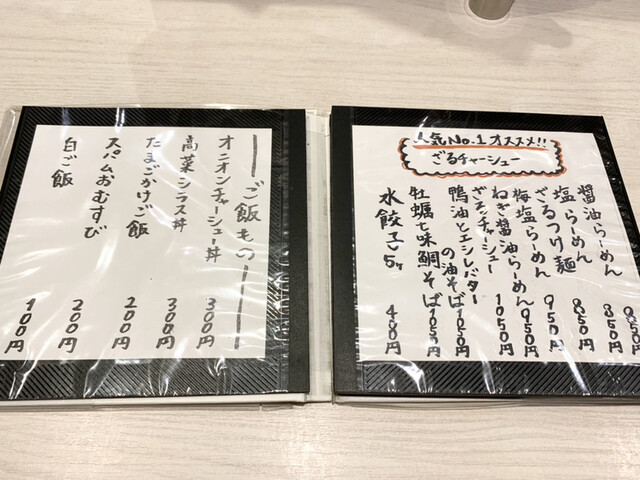 人気No.1オススメ!!
ざるチャーシュー
醤油らーめん 850円
塩らーめん 850円
ざるつけ麺 850円
梅塩らーめん 950円
ねぎ醤油らーめん 950円
ざるチャーシュー 1050円
鴨油とエシレバター
の油そば 1050円
牡蠣と味鯛そば 1050円
水餃子5ヶ 480円
ご飯もの
オニオンチャーシュー丼 300円
高菜シラス丼 300円
たまごかけご飯 200円
スパムおむすび 200円
白ご飯 100円